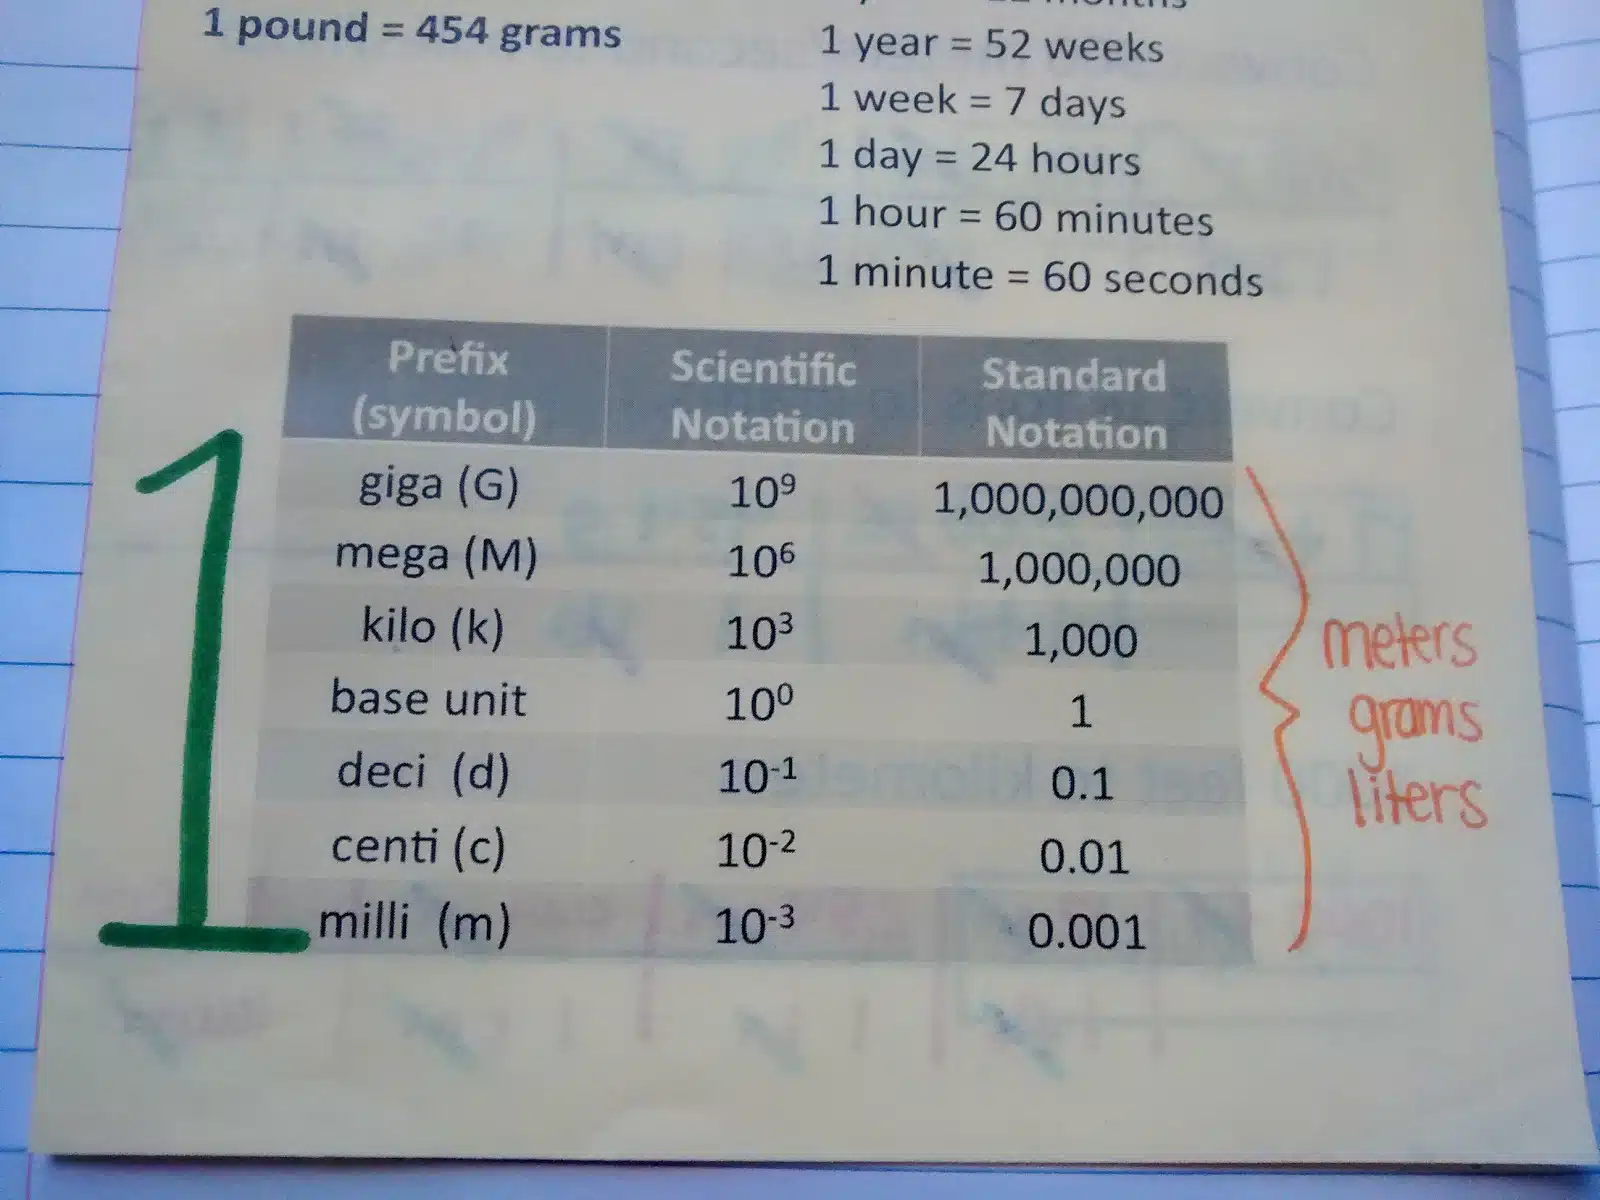 1 pound = 454 grams
months
1 year = 52 weeks
1 week = 7 days
1 day = 24 hours
1 hour = 60 minutes
1 minute = 60 seconds
Prefix (symbol) Scientific Notation Standard Notation
giga (G) 10⁹ 1,000,000,000
mega (M) 10⁶ 1,000,000
kilo (k) 10³ 1,000
base unit 10⁰ 1
deci (d) 10⁻¹ 0.1
centi (c) 10⁻² 0.01
milli (m) 10⁻³ 0.001
1
meters
grams
liters